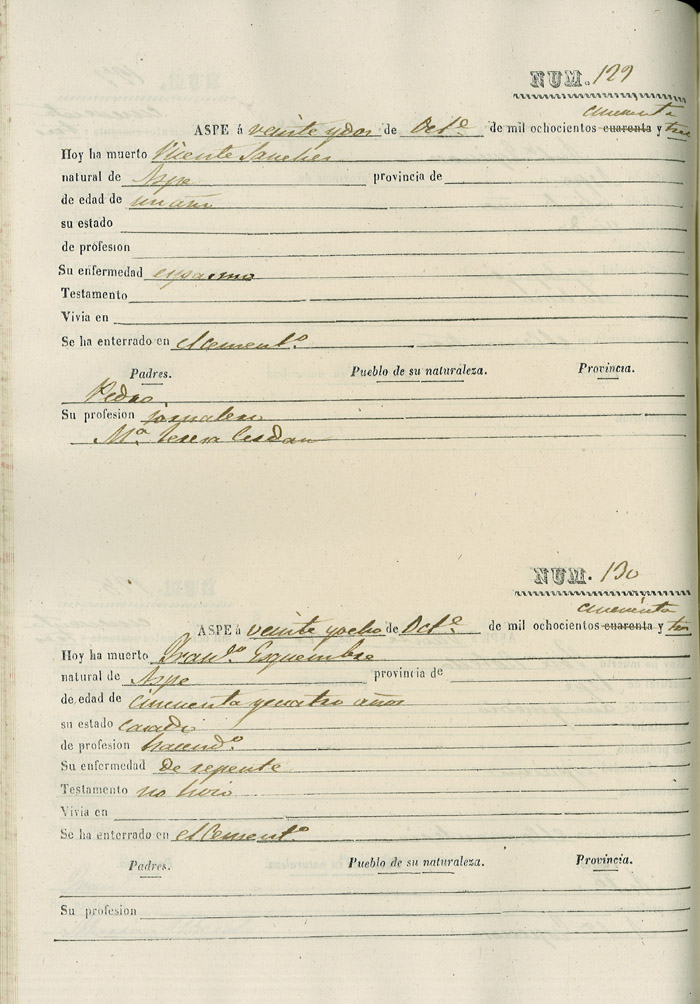 NUM. 129
cincuenta
ASPE á veinte ydos de Oct.e de mil ochocientos cuarenta y tres
Hoy ha muerto Vicente Sanches
natural de Aspe provincia de
de edad de un año
su estado
de profesion
Su enfermedad espasmo
Testamento
Vivia en
Se ha enterrado en el Cement.o
Padres. Pueblo de su naturaleza. Provincia.
Pedro
Su profesion jornalero
M.a Teresa Cerdan
NUM. 130
cincuenta
ASPE á veinte yocho de Oct.e de mil ochocientos cuarenta y tres
Hoy ha muerto Fran.co Esquembre
natural de Aspe provincia de
de edad de cincuenta ycuatro años
su estado casado
de profesion hacend.o
Su enfermedad de repente
Testamento no hizo
Vivia en
Se ha enterrado en el Cement.o
Padres. Pueblo de su naturaleza. Provincia.
Su profesion